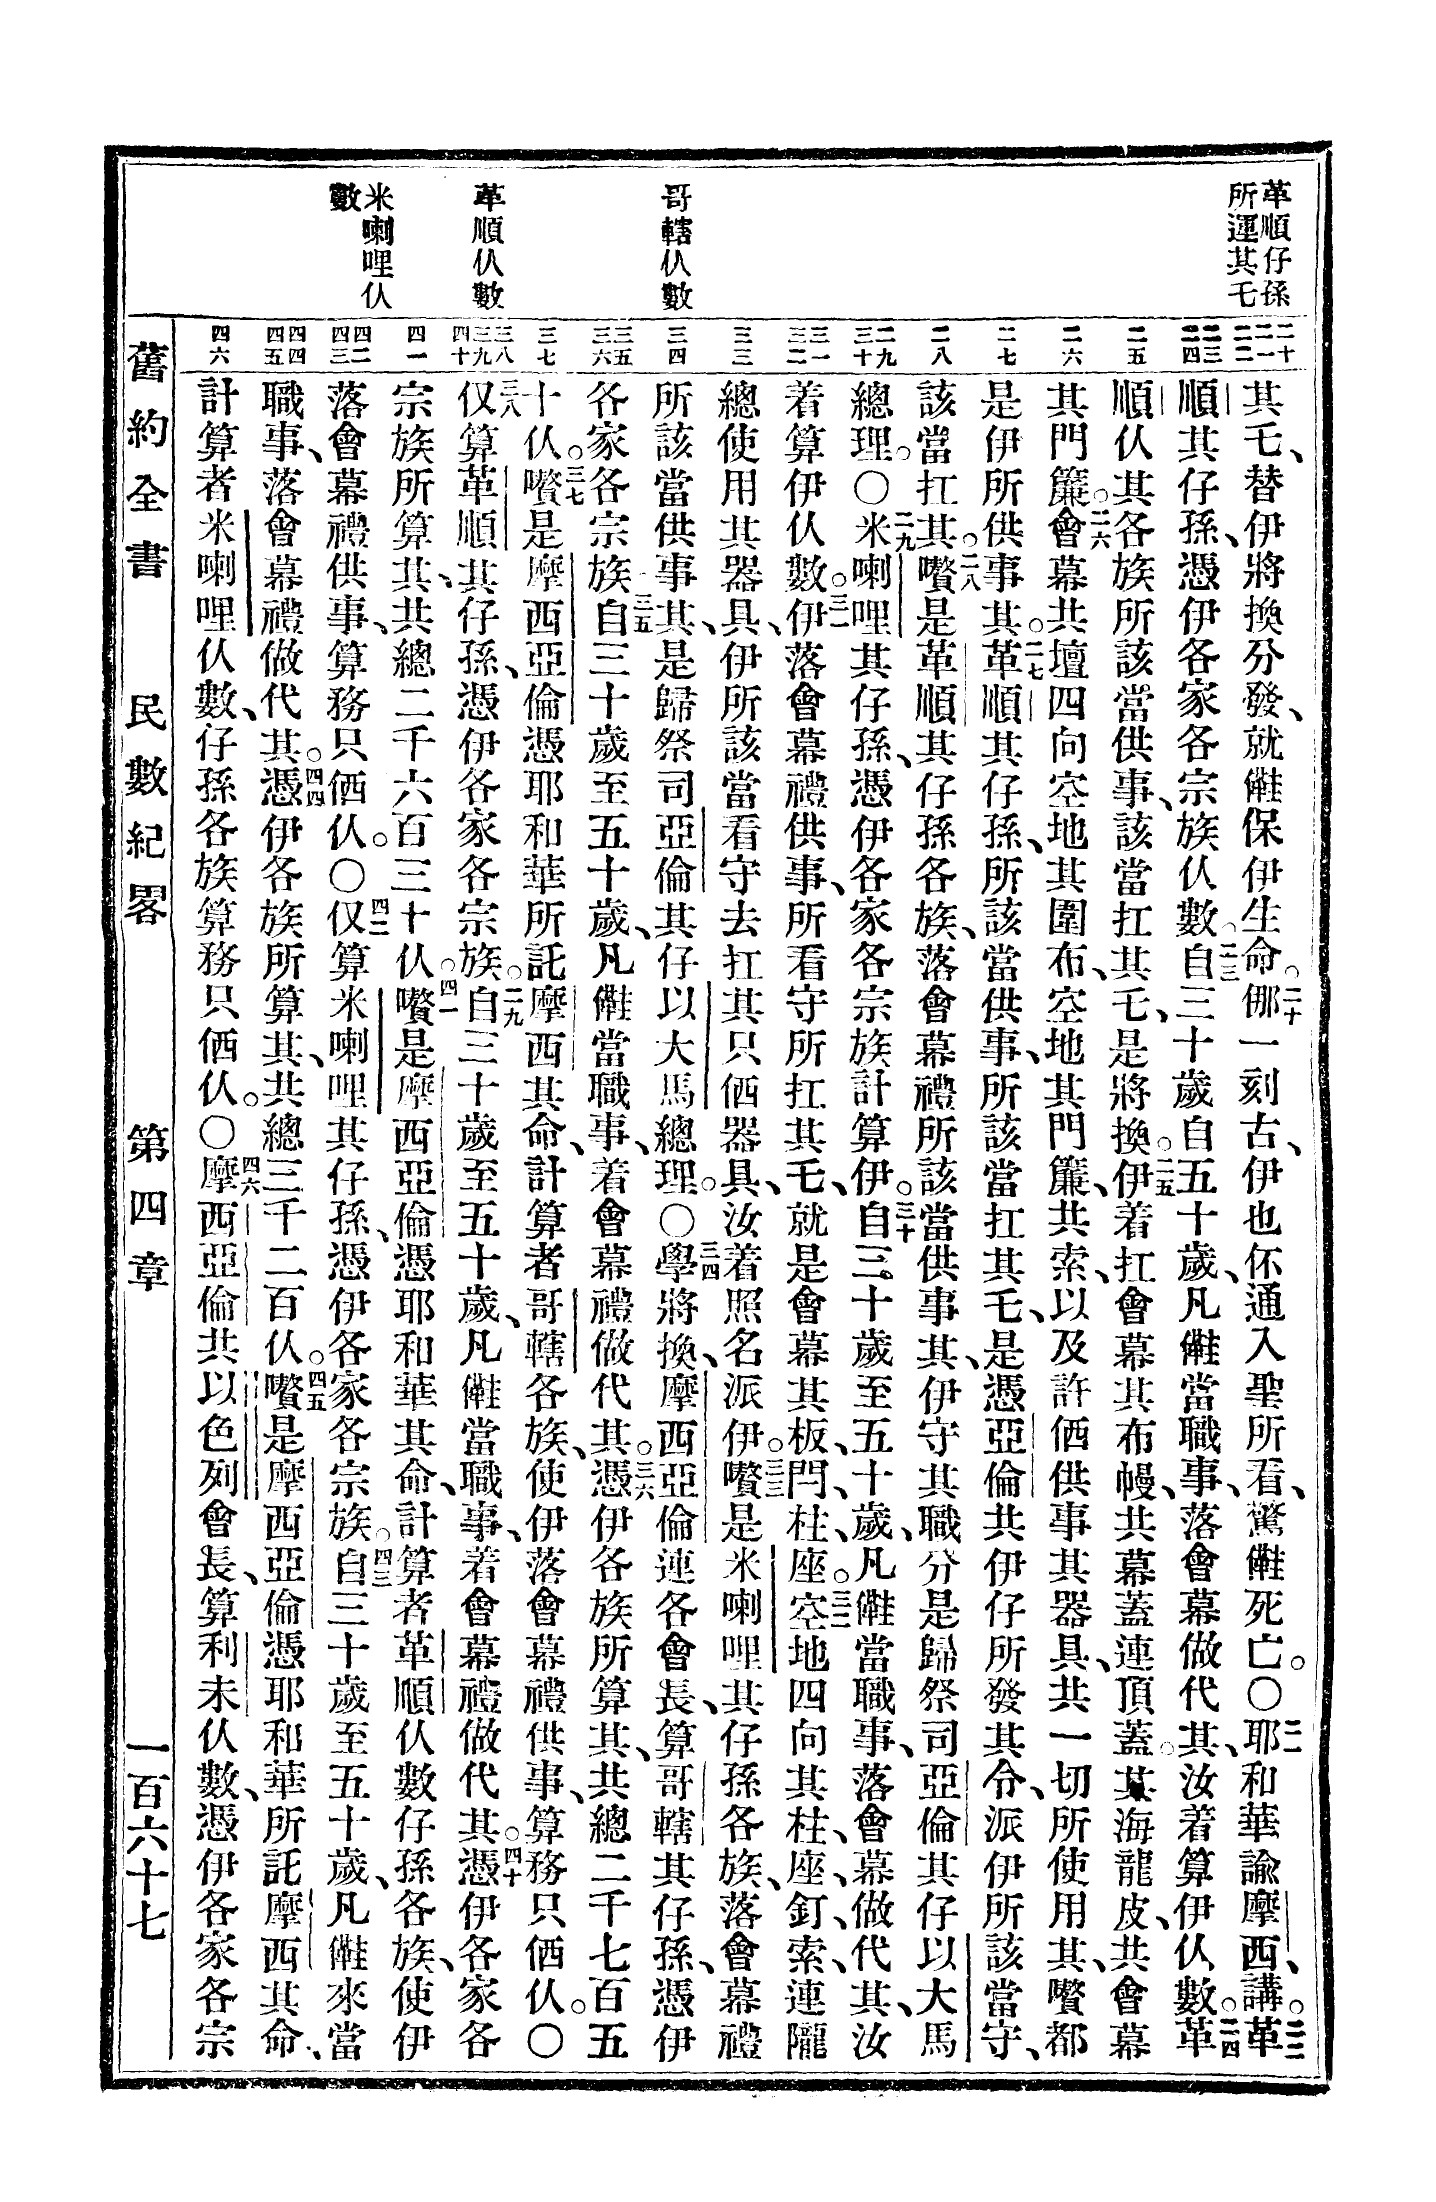 革順仔孫
所運其乇
哥轄仈數
革順仈數
米喇哩仈
數
二十 二一 二二
二三 二四
二五
二六
二七
二八
二九 三十
三一 三二
三三
三四
三五 三六
三七
三八 三九 四十
四一
四二 四三
四四 四五
四六
其乇、替伊將換分發、就保伊生命。二十㑚一刻古、伊也伓通入聖所看、驚死亡。〇二一耶和華諭摩西講、二二革
順其仔孫、憑伊各家各宗族仈數。二三自三十歲自五十歲、凡當職事、落會幕做代其、汝着算伊仈數。二四革
順仈其各族所該當供事、該當扛其乇、是將換。二五伊着扛會幕其布幔、共幕蓋連頂蓋。其海龍皮、共會幕
其門簾。二六會幕共壇四向空地其圍布、空地其門簾、共索、以及許価供事其器具、共一切所使用其、嚽都
是伊所供事其。二七革順其仔孫、所該當供事、所該當扛其乇、是憑亞倫共伊仔所發其令、派伊所該當守、
該當扛其。二八嚽是革順其仔孫各族、落會幕禮所該當供事其、伊守其職分是歸祭司亞倫其仔以大馬
總理。〇二九米喇哩其仔孫、憑伊各家各宗族計算伊。三十自三十歲至五十歲、凡當職事、落會幕做代其、汝
着算伊仈數。三一伊落會幕禮供事、所看守所扛其乇、就是會幕其板、閂、柱、座。三二空地四向其柱、座、釘、索、連隴
總使用其器具、伊所該當看守去扛其只価器具、汝着照名派伊。三三嚽是米喇哩其仔孫各族、落會幕禮
所該當供事其、是歸祭司亞倫其仔以大馬總理。〇三四學將換、摩西亞倫連各會長、算哥轄其仔孫、憑伊
各家各宗族、三五自三十歲至五十歲、凡當職事、着會幕禮做代其。三六憑伊各族所算其、共總二千七百五
十仈。三七嚽是摩西亞倫憑耶和華所託摩西其命、計算者哥轄各族、使伊落會幕禮供事、算務只価仈。〇
三八仅算革順其仔孫、憑伊各家各宗族。二九自三十歲至五十歲、凡當職事、着會幕禮做代其。四十憑伊各家各
宗族所算其、共總二千六百三十仈。四一嚽是摩西亞倫憑耶和華其命、計算者革順仈數仔孫各族、使伊
落會幕禮供事、算務只価仈。〇四二仅算米喇哩其仔孫、憑伊各家各宗族。四三自三十歲至五十歲、凡來當
職事、落會幕禮做代其。四四憑伊各族所算其、共總三千二百仈。四五嚽是摩西亞倫憑耶和華所託摩西其命、
計算者米喇哩仈數、仔孫各族算務只価仈。〇四六摩西亞倫共以色列會長、算利未仈數、憑伊各家各宗
舊約全書　民數紀畧　第四章　一百六十七